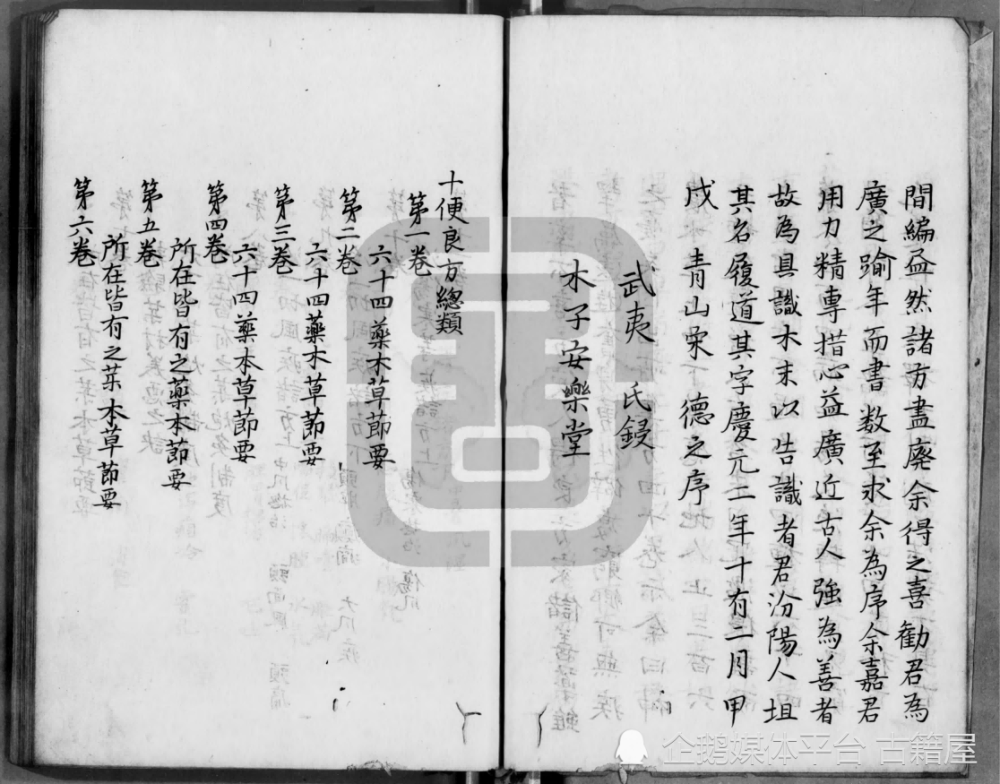 間編益然諸方盡廢余得之喜勸君為
廣之踰年而書数至求余為序余嘉君
用力精專措心益廣近古人強為善者
故為具識本末以告識者君汾陽人坦
其名履道其字慶元二年十有二月甲
戌青山宋德之序
武夷 氏鋟
木子安樂堂
十便良方總類
第一卷
六十四藥木草節要
第二卷
六十四藥木草節要
第三卷
六十四藥本草節要
第四卷
所在皆有之藥本節要
第五卷
所在皆有之茱本草節要
第六卷
企鹅媒体平台 古籍屋